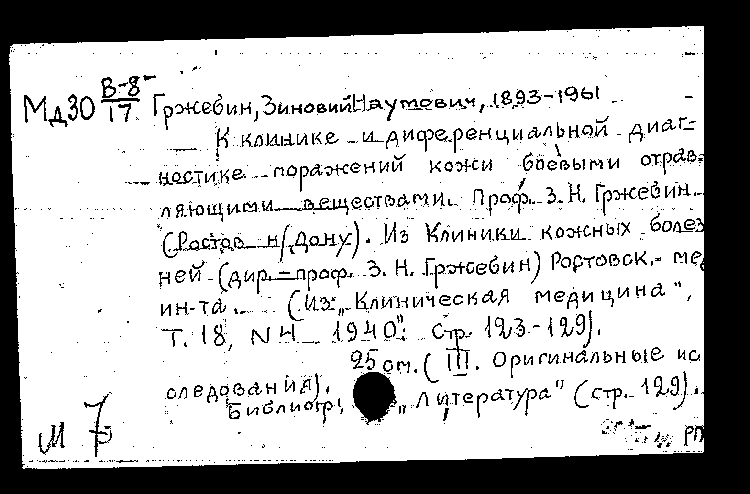 Мд30 В-8-/17 Гржебин, Зиновий Наумевич, 1893-1961
К клинике и диференциальной диаг-
ностике поражений кожи боевыми отрав-
ляющими веществами. Проф. З. Н. Гржебин.
(Ростов н/Дону). Из Клиники кожных болез
ней (дир.-проф. З. Н. Гржебин) Ростовск. ме
ин-та. (Из: „Клиническая медицина",
Т. 18, N 4 1940". Стр. 123-129).
25 см. (III. Оригинальные ис
следования).
Библиогр. „Литература" (стр. 129).
М 7
РП